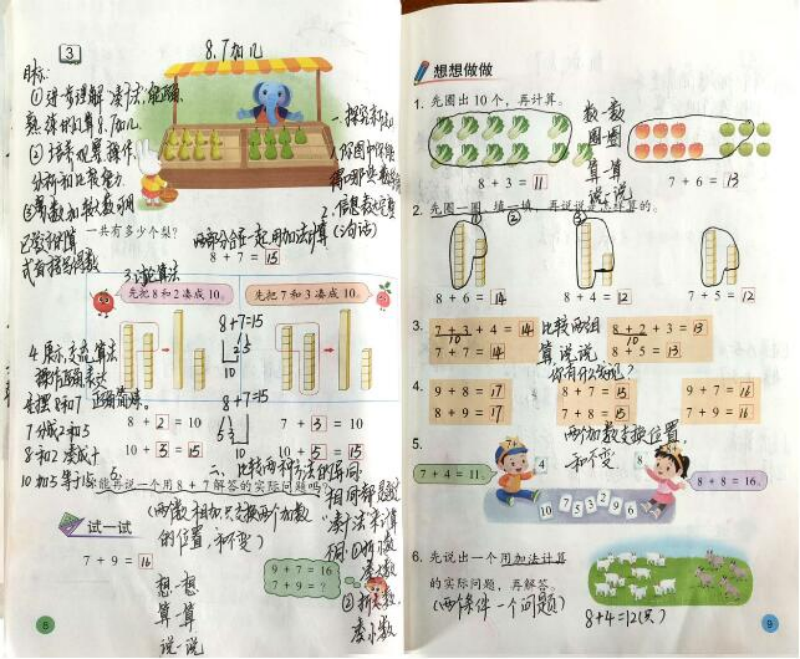 3
8、7加几
目标:
①进一步理解“凑十”法,能正确、
熟练的口算8、7加几。
②培养观察、操作、
分析和比较能力
一、探究新知
一共有多少个梨?
两部分合在一起用加法计算
8 + 7 = 15
先把 8 和 2 凑成 10。
先把 7 和 3 凑成 10。
8+7=15
2 5
10
4.展示,交流,算法
8+7=15
5 3
10
先摆8和7
7分成2和5
8和2凑成十
10加5等于15
8 + 2 = 10
7 + 3 = 10
10 + 5 = 15
10 + 5 = 15
二、比较两种方法的异同
能再说一个用 8 + 7 解答的实际问题吗?
(两数相加只交换两个加数
的位置,和不变)
试一试
7 + 9 = 16
9 + 7 = 16
7 + 9 = ?
想一想
算一算
说一说
①拆小数
凑大数
②拆大数
凑小数
8
想想做做
1. 先圈出 10 个,再计算。
数一数
圈一圈
算一算
说一说
8 + 3 = 11
7 + 6 = 13
2. 先圈一圈、填一填,再说说是怎样计算的。
① ② ③
8 + 6 = 14
8 + 4 = 12
7 + 5 = 12
3.
7 + 3 + 4 = 14
10
7 + 7 = 14
比较两组
算一算说说
你有什么发现?
8 + 2 + 3 = 13
10
8 + 5 = 13
4.
9 + 8 = 17
8 + 9 = 17
8 + 7 = 15
7 + 8 = 15
9 + 7 = 16
7 + 9 = 16
两个加数交换位置,
和不变.
5.
7 + 4 = 11。
7+
4
8
8+
8 + 8 = 16。
10 7 5 3 2 9 6
6. 先说出一个用加法计算
的实际问题,再解答。
(两个条件一个问题)
8+4=12(只)
9